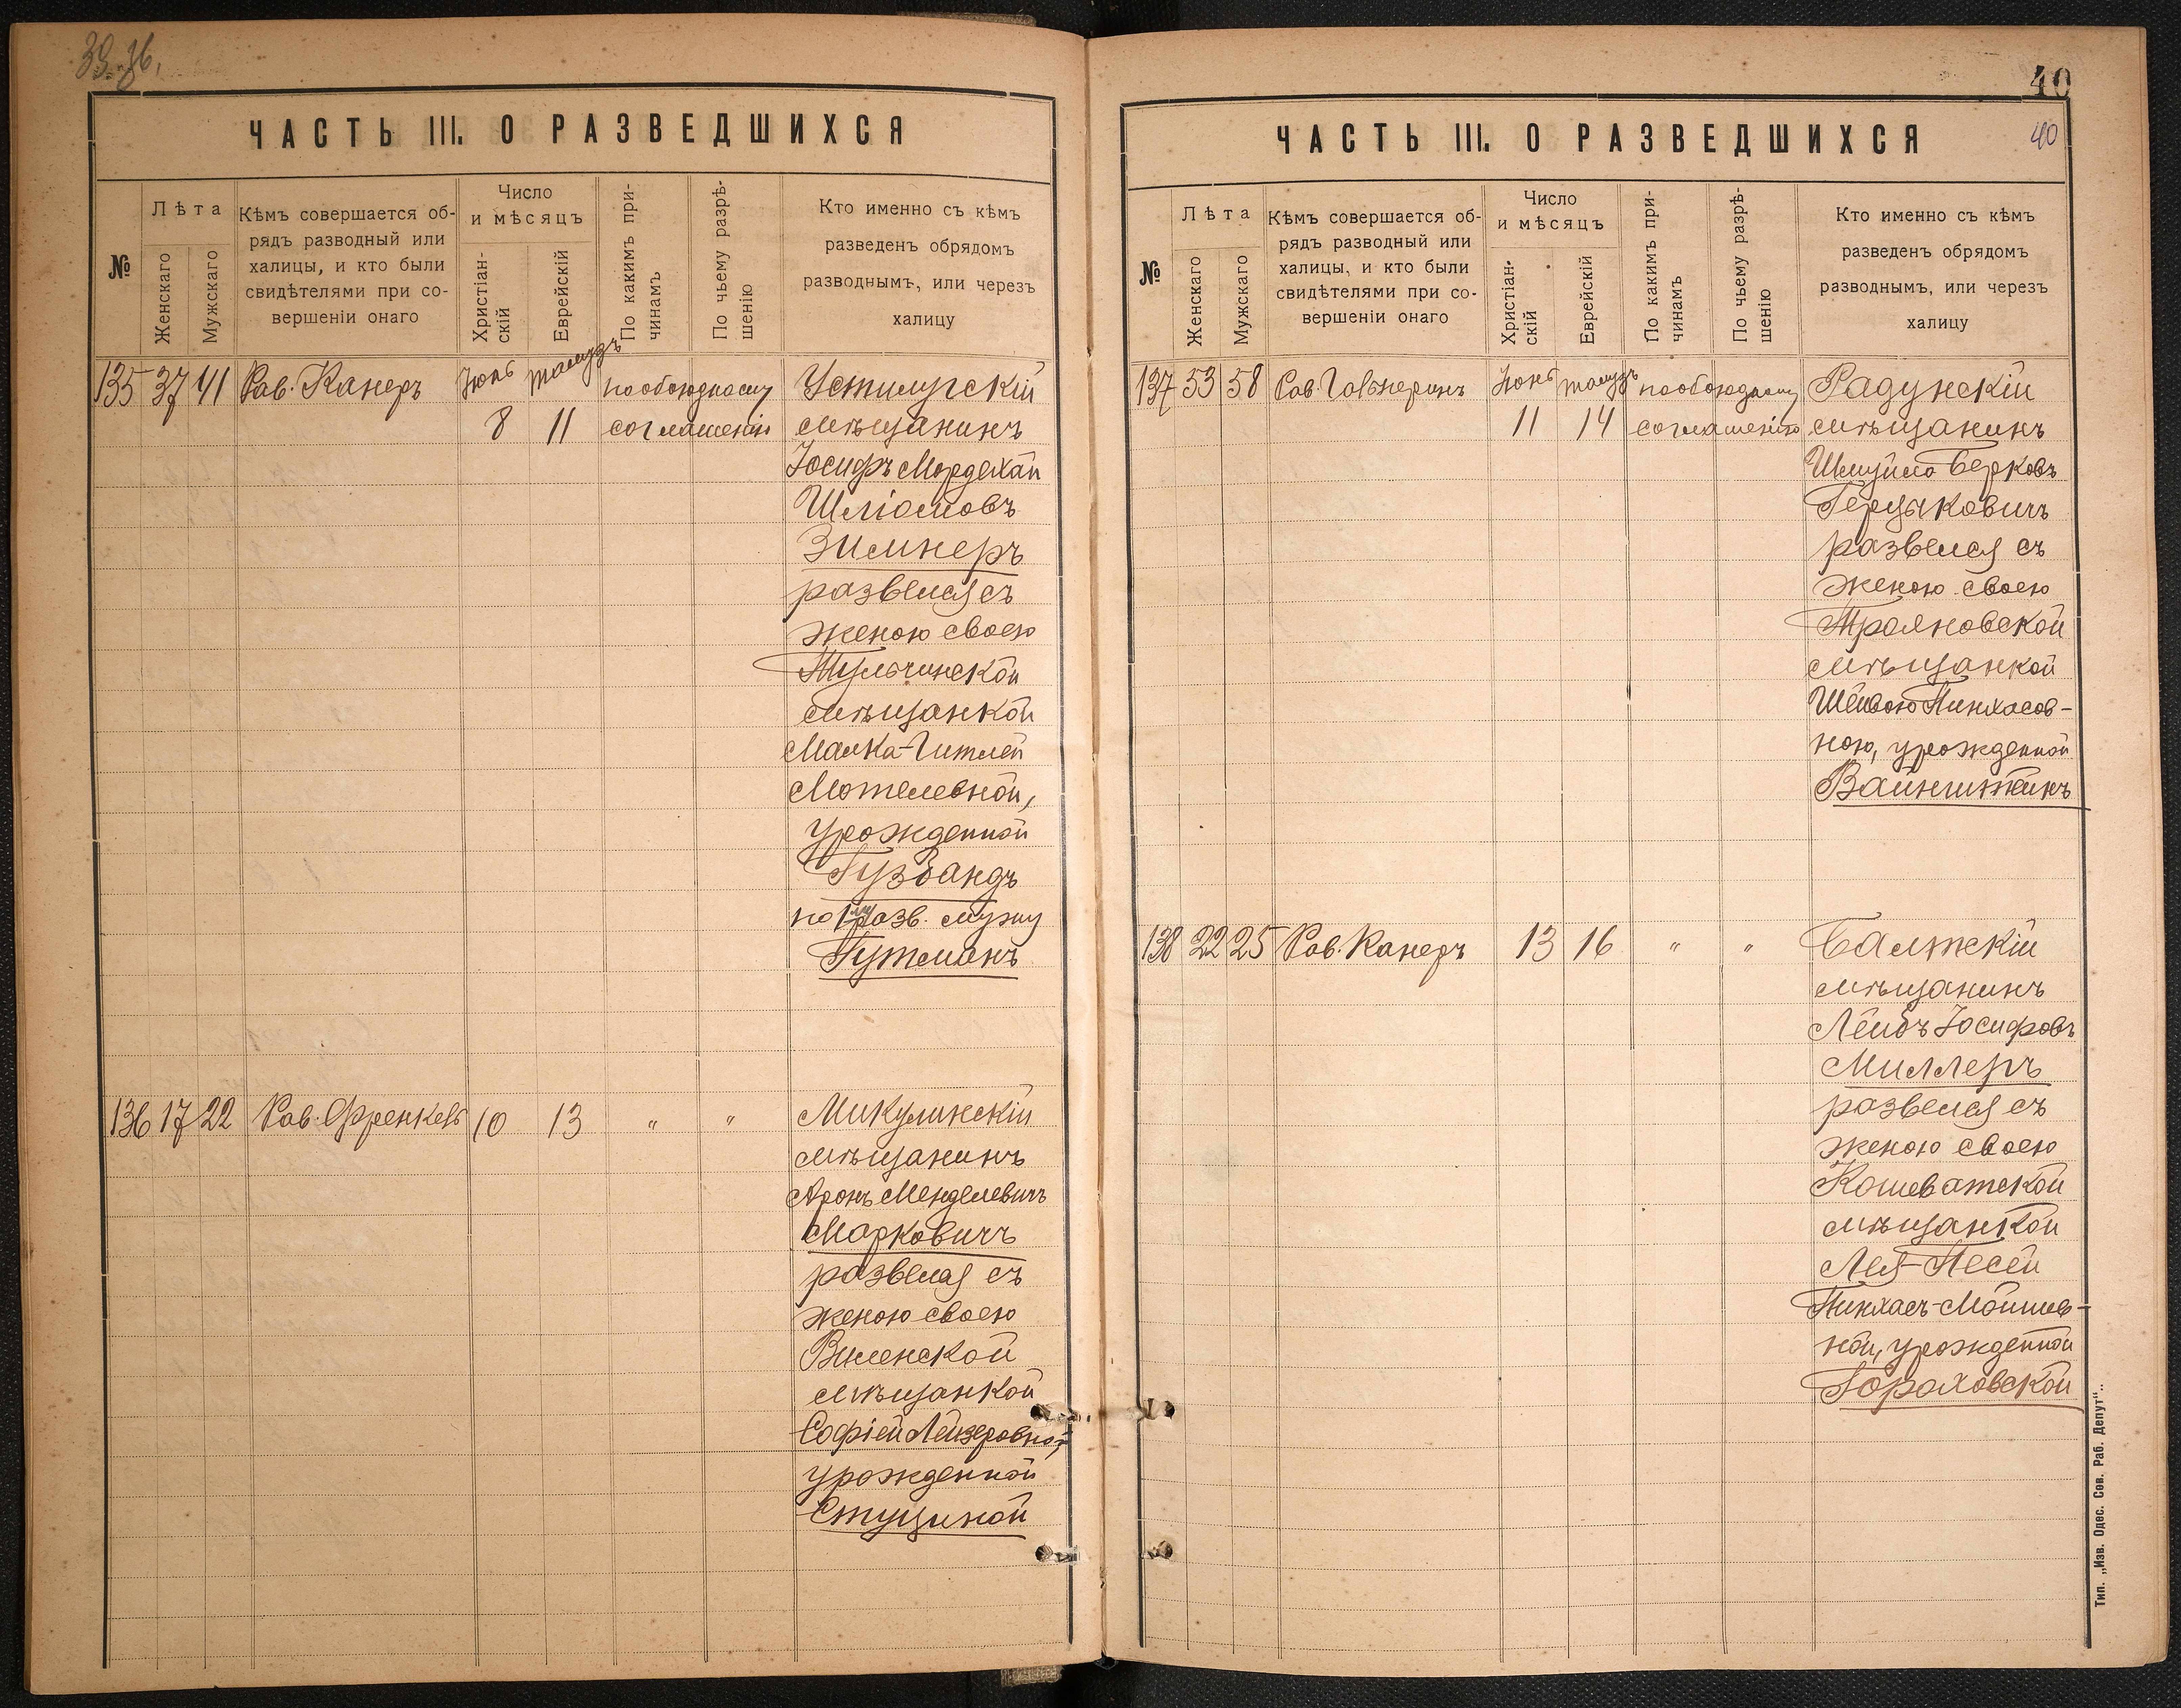 ЧАСТЬ III. О РАЗВЕДШИХСЯ
№
Лѣта
Женскаго
Мужскаго
Кѣмъ совершается об-
рядъ разводный или
халицы, и кто были
свидѣтелями при со-
вершеніи онаго
Число
и мѣсяцъ
Христіан-
скій
Еврейскій
По какимъ при-
чинамъ
По чьему разрѣ-
шенію
Кто именно съ кѣмъ
разведенъ обрядомъ
разводнымъ, или черезъ
халицу
135 37 41 Рав. Канеръ Іюнь Тамузъ по обоюдному Устилугскій
8 11 соглашенію мѣщанинъ
Іосифъ Мордехай
Шліомовъ
Зимнеръ
развелся съ
женою своею
Тульчинской
мѣщанкой
Малка-Гитлей
Мотелевной,
урожденной
Гузбандъ
по 1му разв. мужу
Гутманъ
136 17 22 Рав. Френкель 10 13 " " Микулинскій
мѣщанинъ
Аронъ Менделевичъ
Марковичъ
развелся съ
женою своею
Виленской
мѣщанкой
Софіей Лейзеровной,
урожденной
Стущиной
40
ЧАСТЬ III. О РАЗВЕДШИХСЯ
40
№
Лѣта
Женскаго
Мужскаго
Кѣмъ совершается об-
рядъ разводный или
халицы, и кто были
свидѣтелями при со-
вершеніи онаго
Число
и мѣсяцъ
Христіан-
скій
Еврейскій
По какимъ при-
чинамъ
По чьему разрѣ-
шенію
Кто именно съ кѣмъ
разведенъ обрядомъ
разводнымъ, или черезъ
халицу
137 53 58 Рав. Гальперинъ Іюнь Тамузъ по обоюдному Радунскій
11 14 соглашенію мѣщанинъ
Шмуйло Берковъ
Герцыковичъ
развелся съ
женою своею
Трояновской
мѣщанкой
Шейвою Пинхасов-
ною, урожденной
Вайнштейнъ
138 22 25 Рав. Канеръ 13 16 " " Балтскій
мѣщанинъ
Лейбъ Іосифовъ
Миллеръ
развелся съ
женою своею
Кошеватской
мѣщанкой
Лея-Песей
Пинхасъ-Мойшев-
ной, урожденной
Гороховской
Тип. „Изв. Одес. Сов. Раб. Депут“.